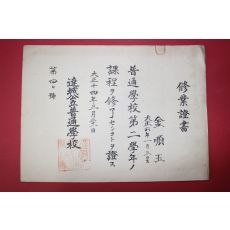 修業證書
金順玉
大正六年一月五日生
普通學校第二學年ノ
課程ヲ修了セシコトヲ證ス
大正十四年三月
達城公立普通學校
第四 號